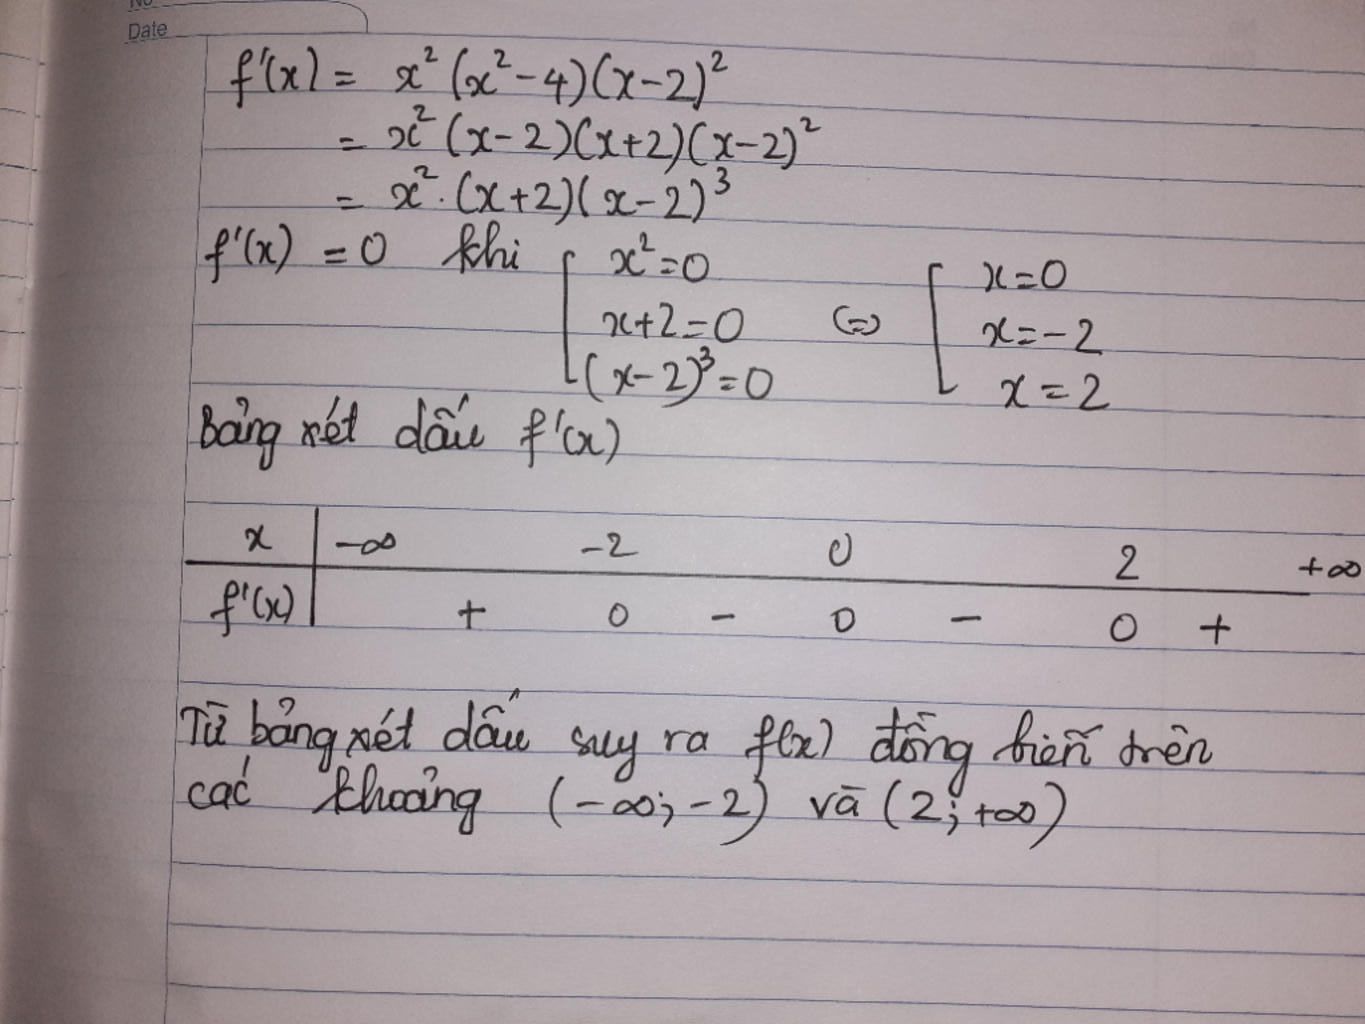 No
Date
f'(x) = x² (x² - 4)(x - 2)²
= x² (x - 2)(x + 2)(x - 2)²
= x² . (x + 2)(x - 2)³
f'(x) = 0 khi [ x² = 0
x + 2 = 0 ⇔ [ x = 0
(x - 2)³ = 0 x = -2
x = 2
Bảng xét dấu f'(x)
x | -∞ -2 0 2 +∞
f'(x) | + 0 - 0 - 0 +
Từ bảng xét dấu suy ra f(x) đồng biến trên
các khoảng (-∞; -2) và (2; +∞)